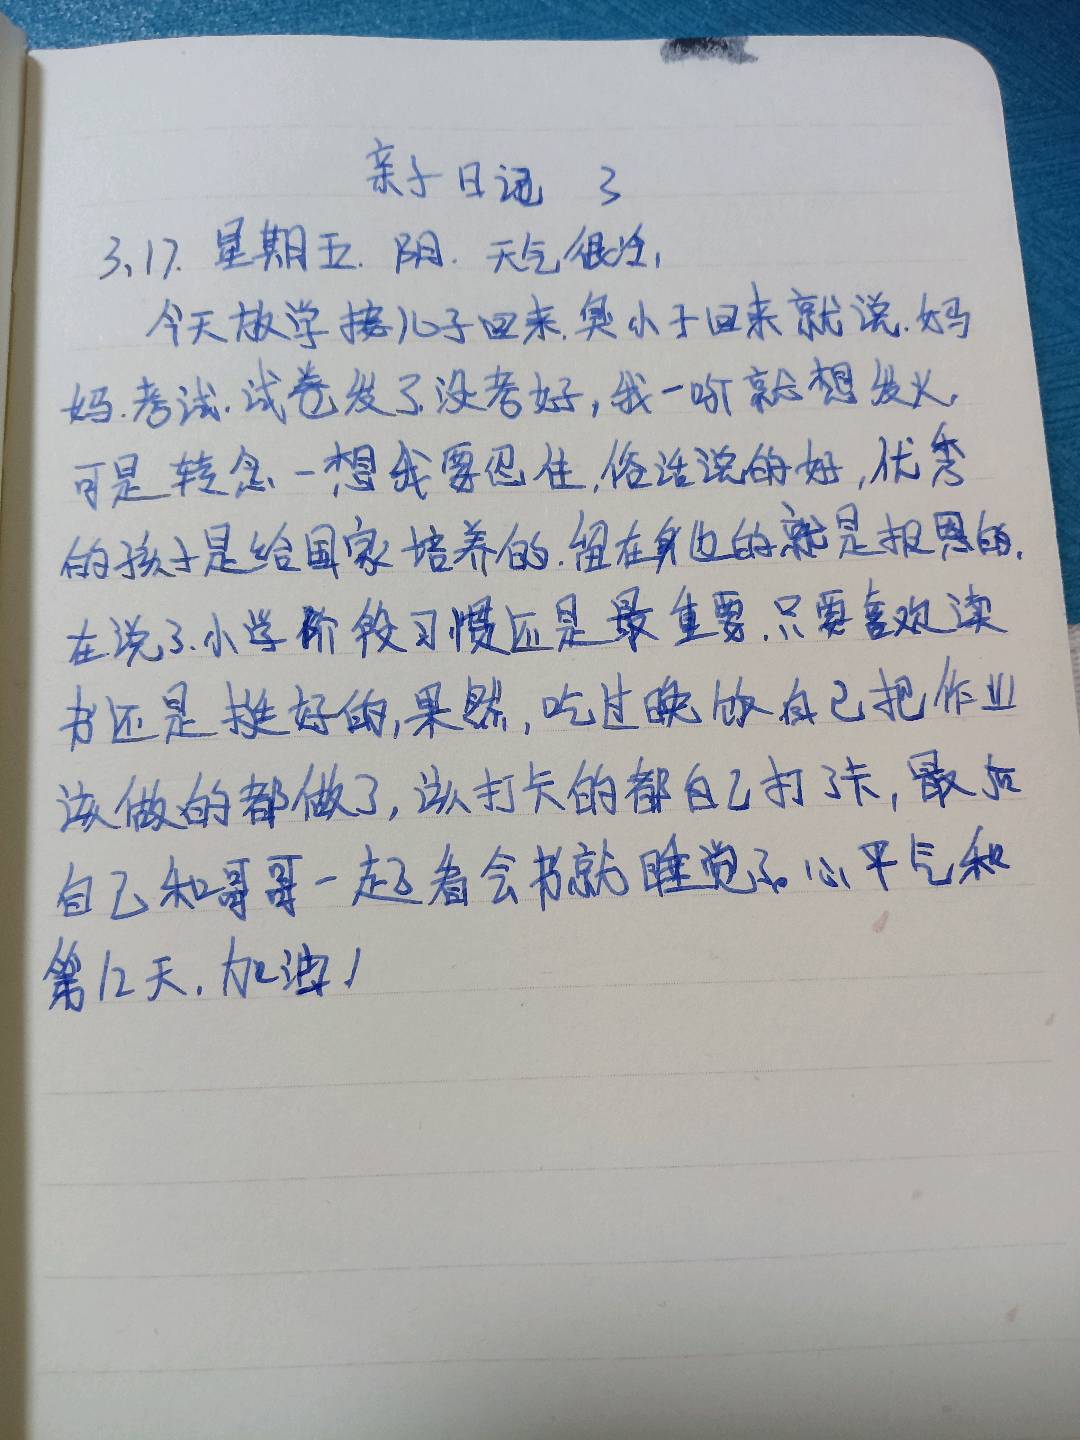 亲子日记 3
3.17. 星期五. 阴. 天气很冷,
今天放学接儿子回来.臭小子回来就说.妈
妈.考试.试卷发了没考好,我一听就想发火.
可是转念一想我要忍住.俗话说的好,优秀
的孩子是给国家培养的.留在身边的就是报恩的.
在说了.小学阶段习惯还是最重要.只要喜欢读
书还是挺好的,果然,吃过晚饭自己把作业
该做的都做了,该打卡的都自己打了卡,最后
自己和哥哥一起看会书就睡觉了。心平气和
第12天.加油!